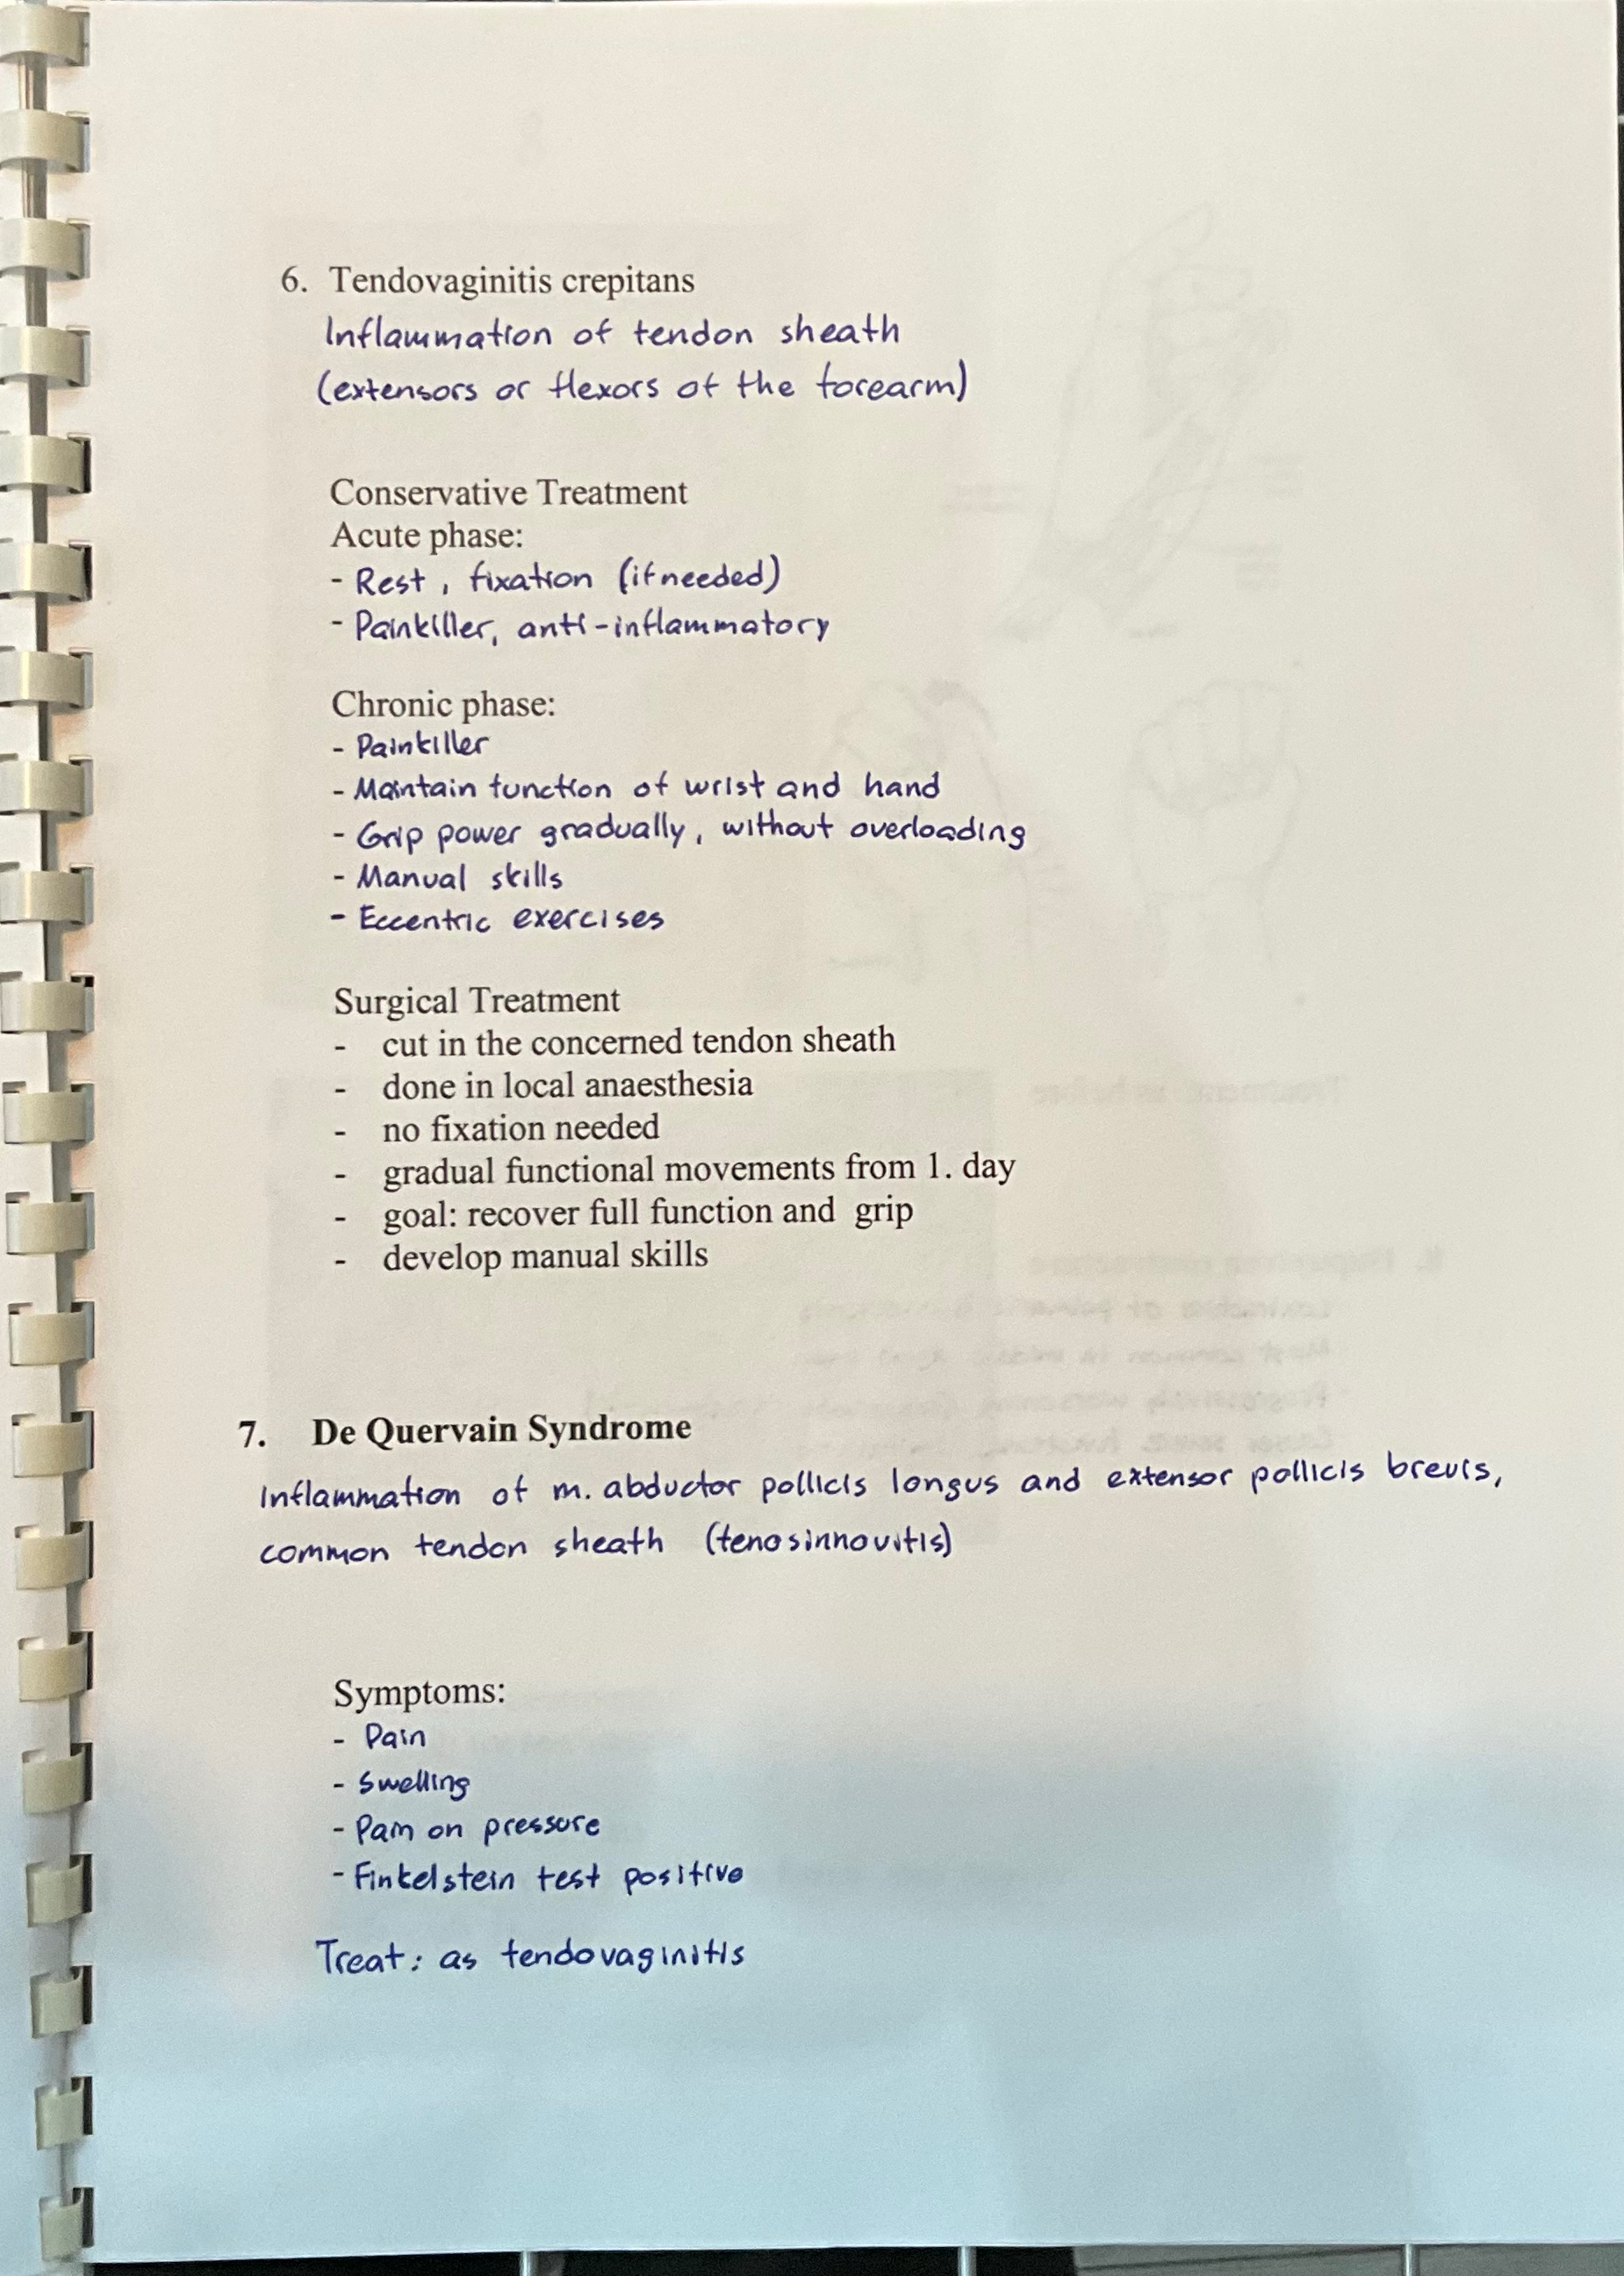 6. Tendovaginitis crepitans
Inflammation of tendon sheath
(extensors or flexors of the forearm)
Conservative Treatment
Acute phase:
- Rest, fixation (if needed)
- Painkiller, anti-inflammatory
Chronic phase:
- Painkiller
- Maintain function of wrist and hand
- Grip power gradually, without overloading
- Manual skills
- Eccentric exercises
Surgical Treatment
- cut in the concerned tendon sheath
- done in local anaesthesia
- no fixation needed
- gradual functional movements from 1. day
- goal: recover full function and grip
- develop manual skills
7. De Quervain Syndrome
Inflammation of m. abductor pollicis longus and extensor pollicis brevis,
common tendon sheath (tenosinnovitis)
Symptoms:
- Pain
- Swelling
- Pain on pressure
- Finkelstein test positive
Treat: as tendovaginitis